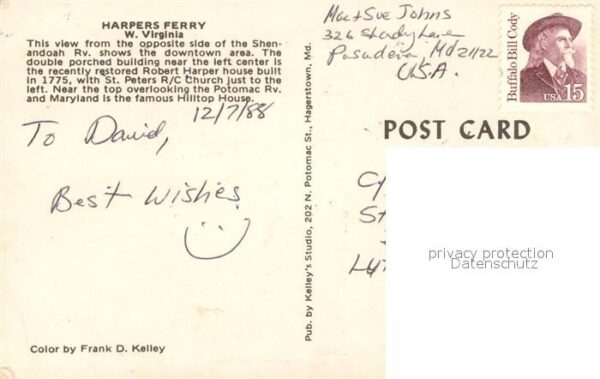 HARPERS FERRY
W. Virginia
This view from the opposite side of the Shen-
andoah Rv. shows the downtown area. The
double porched building near the left center is
the recently restored Robert Harper house built
in 1775, with St. Peters R/C Church just to the
left. Near the top overlooking the Potomac Rv.
and Maryland is the famous Hilltop House.
12/7/88
To David,
Best Wishes
Color by Frank D. Kelley
Pub. by Kelley's Studio, 202 N. Potomac St., Hagerstown, Md.
Sue Johns
326 Lane
Pasadena Md 21122
U.S.A.
Buffalo Bill Cody
USA 15
POST CARD
privacy protection
Datenschutz